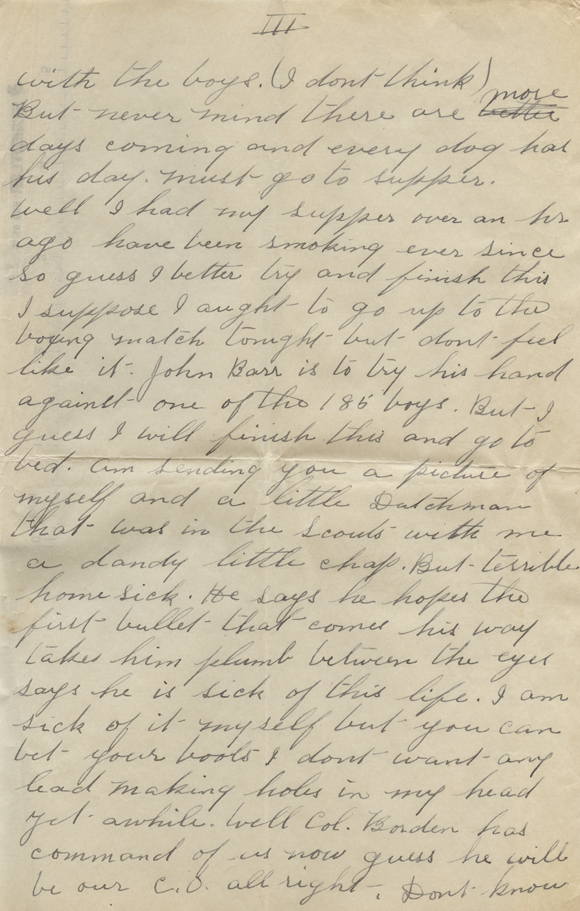 III
with the boys. (I dont think)
But never mind there are better more
days coming and every dog has
his day. must go to supper.
Well I had my supper over an hr
ago have been smoking ever since
so guess I better try and finish this
I suppose I aught to go up to the
boxing match tonight but dont feel
like it. John Barr is to try his hand
against one of the 185 boys. But I
guess I will finish this and go to
bed. am sending you a picture of
myself and a little Dutchman
that was in the Scouts with me
a dandy little chap. But terrible
home sick. He says he hopes the
first bullet that comes his way
takes him plumb between the eyes
says he is sick of this life. I am
sick of it myself but you can
bet your boots I dont want any
lead making holes in my head
yet awhile. Well Col. Borden has
command of us now guess he will
be our C.O. all right. Dont know